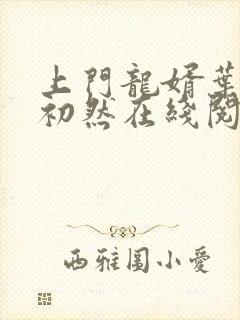 上門龍婿葉
初然在綫閱
西雅圖小愛